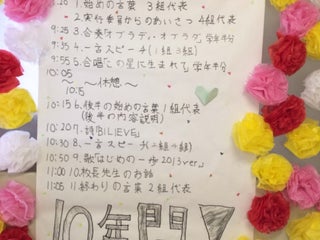 1.始めの言葉 3組代表
2.実行委員からのあいさつ 4組代表
9:25 3.合奏「オブラディ・オブラダ」学年半分
9:35 4.一言スピーチ(1組3組)
9:55 5.合唱「この星に生まれて」学年半分
10:05
～休憩～
10:15 6.後半の始めの言葉 1組代表
(後半の内容説明)
10:20 7.詩「BILIEVE」
10:30 8.一言スピーチ
10:50 9.歌「はじめの一歩2013ver」
11:00 10.校長先生のお話
11:05 11.終わりの言葉 2組代表
10年間